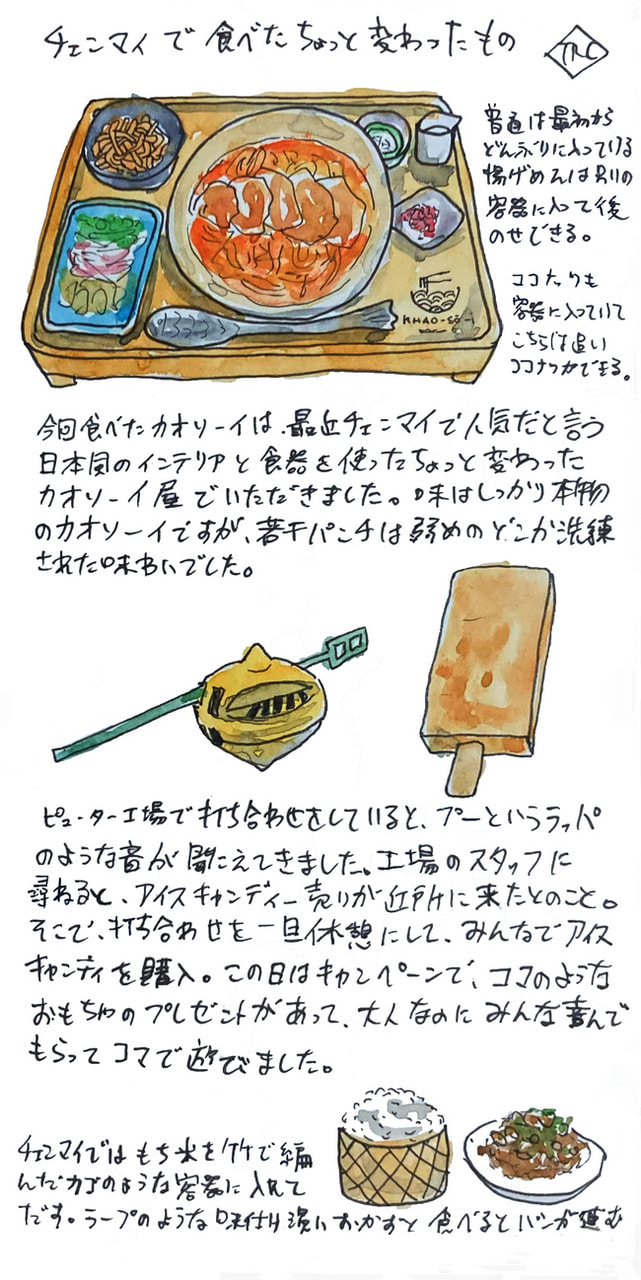 チェンマイで食べたちょっと変わったもの
TRC
普通は最初から
どんぶりに入っている
揚げめんは別の
容器に入って後
のせできる。
ココナツも
容器に入っていて
こちらは追い
ココナッツができる。
KHAO-SO-i
今回食べたカオソーイは、最近チェンマイで人気だと言う
日本風のインテリアと食器を使ったちょっと変わった
カオソーイ屋でいただきました。味はしっかり本物
のカオソーイですが、若干パンチは弱めのどこか洗練
された味わいでした。
ピューター工場で打ち合わせをしていると、プーというラッパ
のような音が聞こえてきました。工場のスタッフに
尋ねると、アイスキャンディー売りが近所に来たとのこと。
そこで、打ち合わせを一旦休憩にして、みんなでアイス
キャンディを購入。この日はキャンペーンで、コマのような
おもちゃのプレゼントがあって、大人なのにみんな喜んで
もらってコマで遊びました。
チェンマイではもち米を竹で編
んだカゴのような容器に入れて
だす。ラープのような味付け濃いおかずと食べるとバンが進む